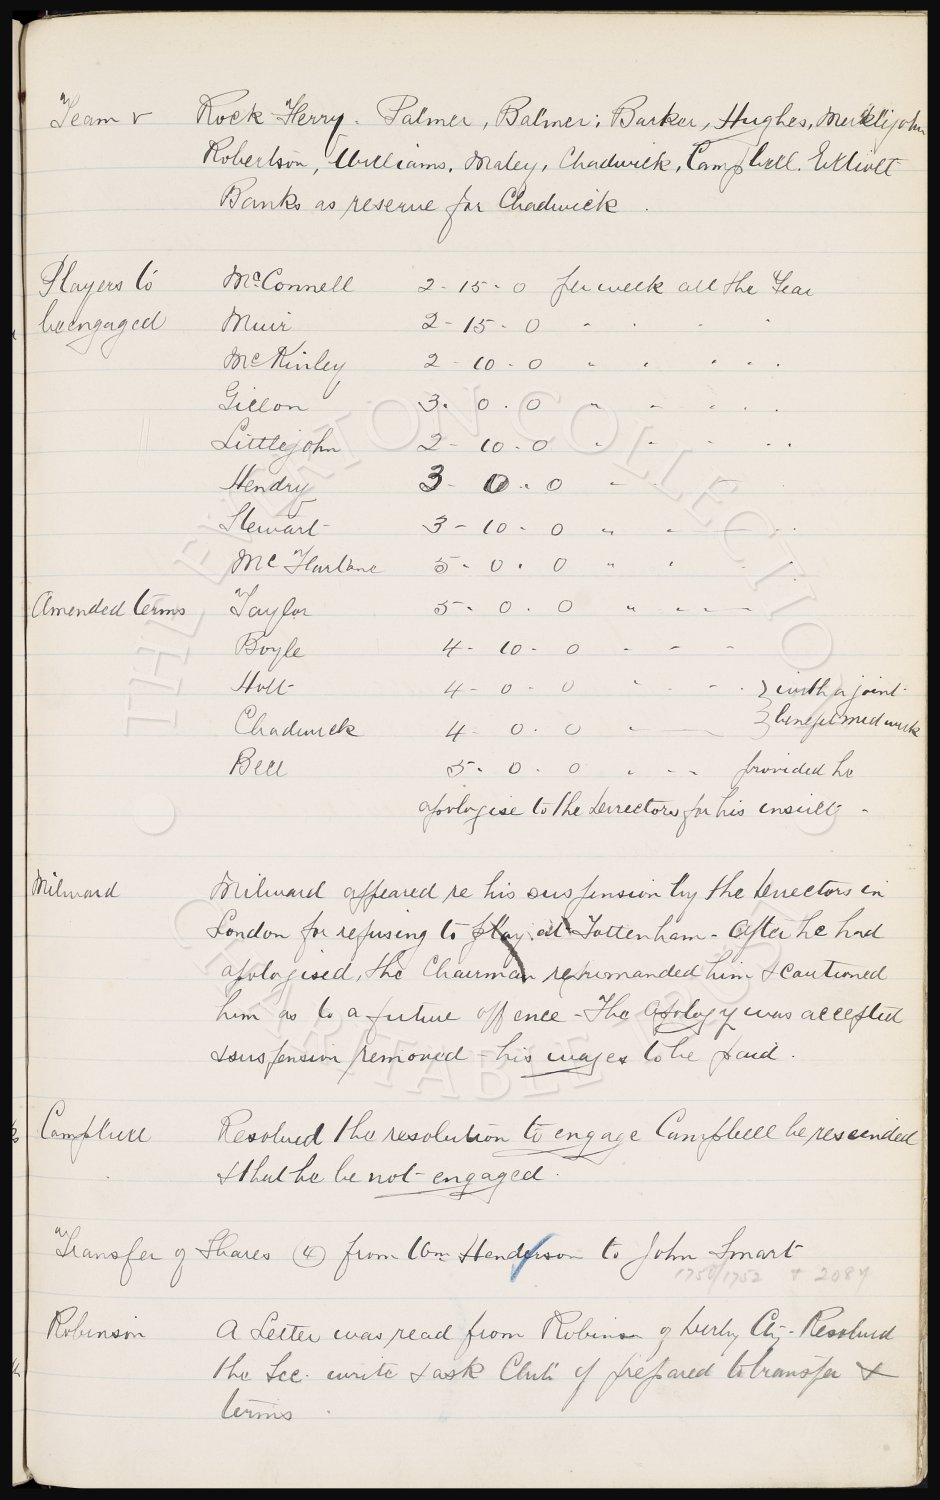 Team v Rock Ferry. Palmer, Balmer, Barker, Hughes, Meiklejohn
Robertson, Williams, Maley, Chadwick, Campbell. Elliott
Banks as reserve for Chadwick.
Players to McConnell 2-15-0 per week all the Year
be engaged Muir 2-15-0 " " " "
McKinley 2-10-0 " " " " "
Gillon 3.0.0 " " " " "
Littlejohn 2-10-0 " " " " "
Hendry 3-0.0 " " " "
Stewart 3-10-0 " " " " "
McFarlane 5.0.0 " " " "
Amended terms Taylor 5.0.0 " " " "
Boyle 4-10-0 " " "
Holt 4-0-0 " " " } with a joint
Chadwick 4.0.0 " } benefit midweek
Bell 5.0.0 " " " provided he
apologise to the Directors for his insult-
Milward Milward appeared re his suspension by the Directors in
London for refusing to play at Tottenham - After he had
apologised, the Chairman reprimanded him & cautioned
him as to a future offence - The apology was accepted
& suspension removed - his wages to be paid.
Campbell Resolved the resolution to engage Campbell be rescinded
& that he be not engaged.
Transfer of Shares (4) from Wm Henderson to John Smart
1750/1752 + 2084
Robinson A Letter was read from Robinson of Derby Cty - Resolved
the Sec. write & ask Club if prepared to transfer &
terms.
THE EVERTON COLLECTION
CHARITABLE TRUST